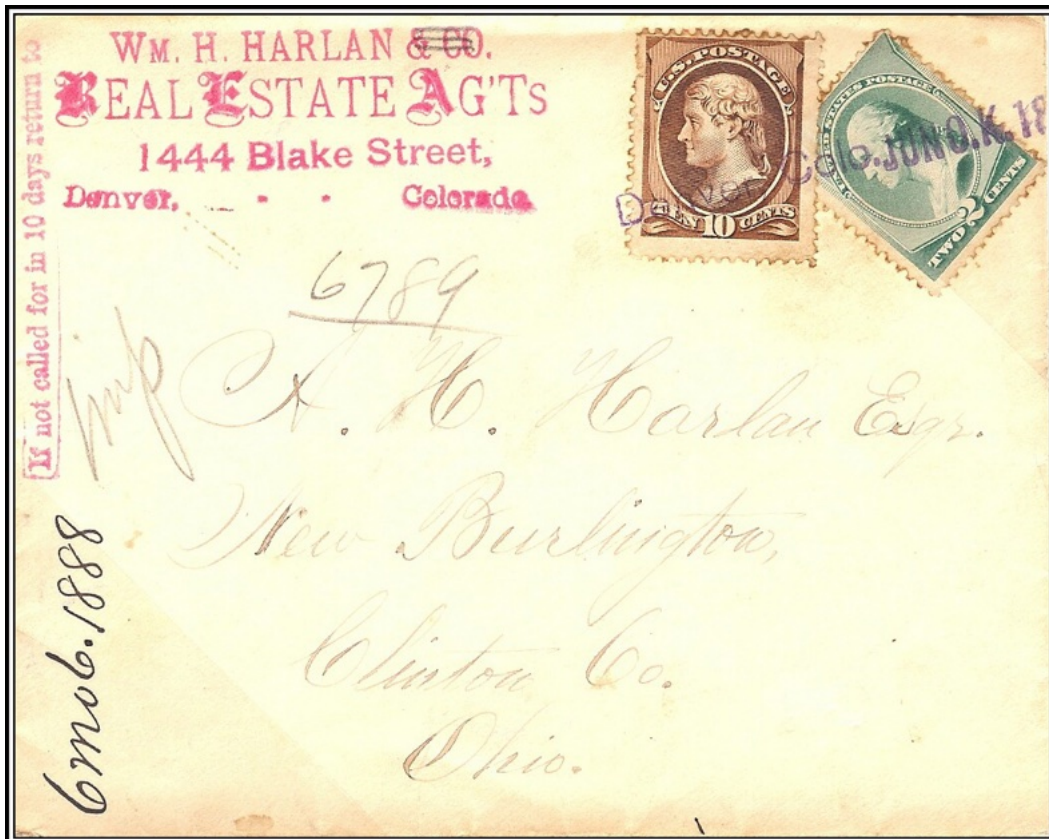 If not called for in 10 days return to
WM. H. HARLAN & CO.
REAL ESTATE AG'TS
1444 Blake Street,
Denver, - - - Colorado.
U.S. POSTAGE
TEN 10 CENTS
UNITED STATES POSTAGE
TWO 2 CENTS
Denver Colo. JUN 8. K. 18
6789
A. H. Harlan Esqr.
New Burlington,
Clinton Co.
Ohio.
6mo 6. 1888